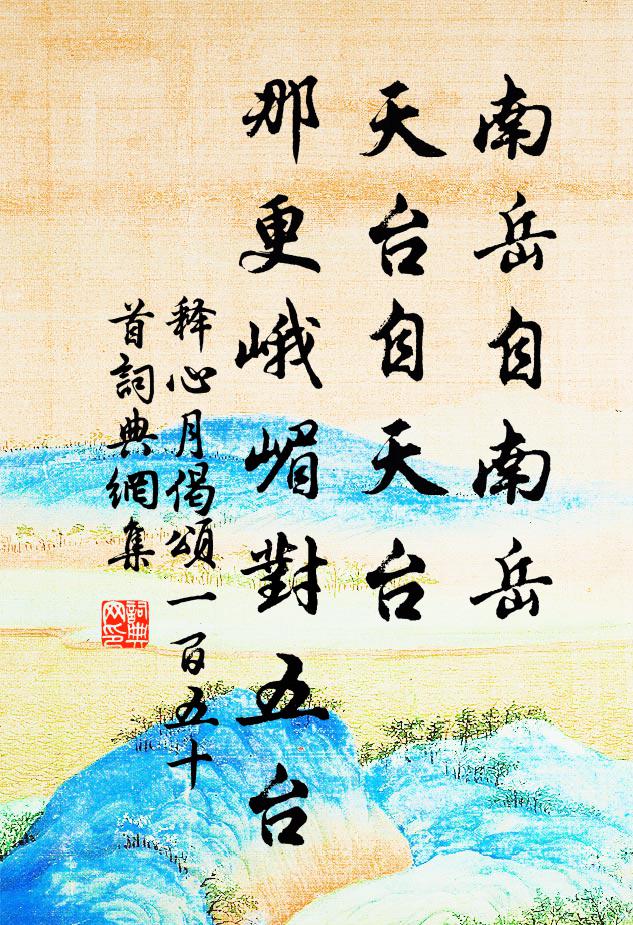 南岳自南岳
天台自天台
那更峨嵋對五台
释心月偈頌一百五十
首詞典網集
詞典网印